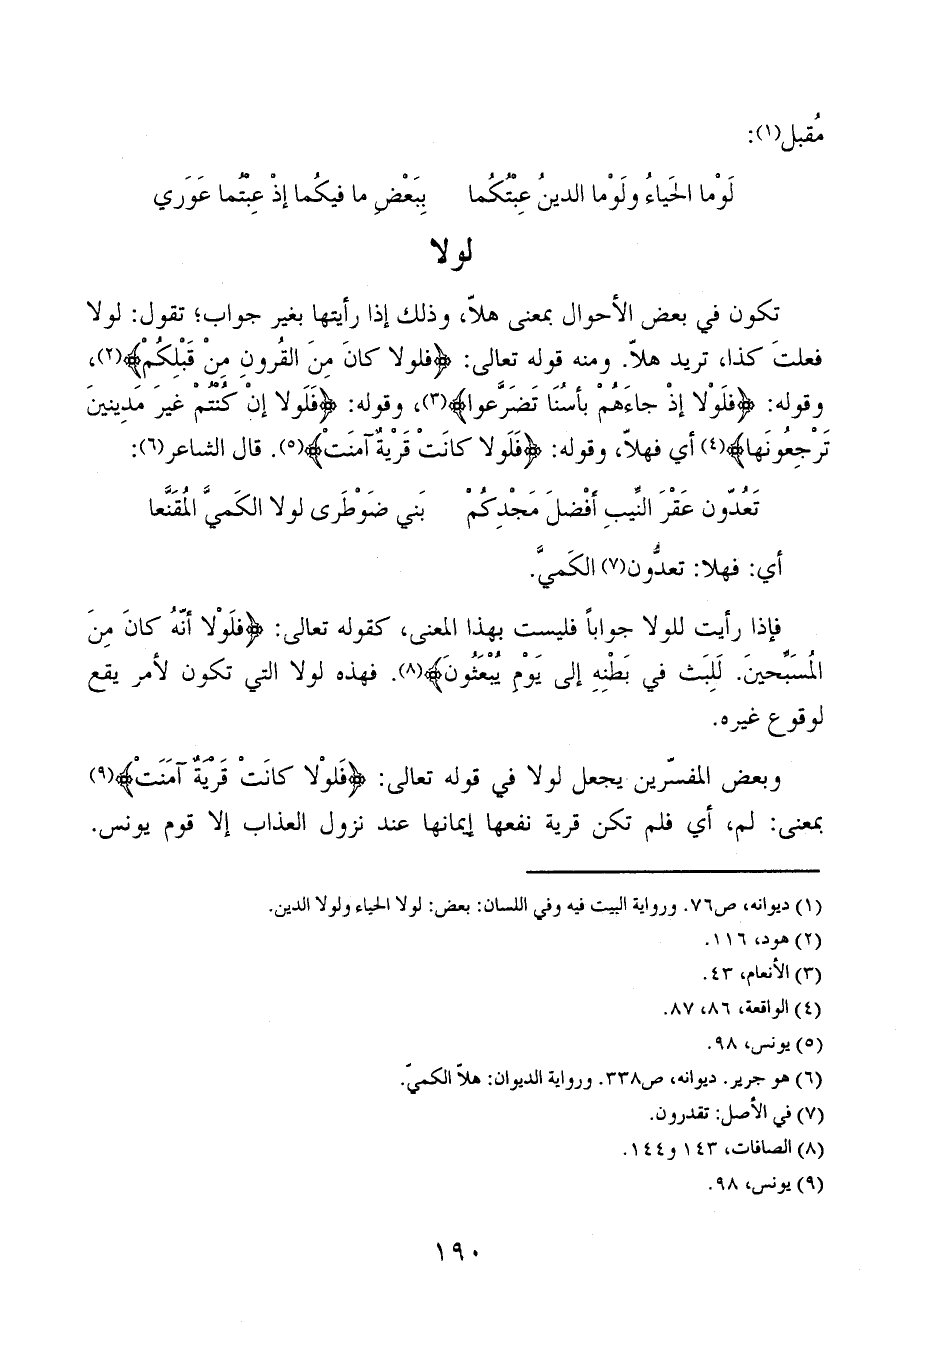 مُقبل(١):
لَوْما الحَياءُ ولَوْما الدينُ عِبْتُكُما بِبَعْضِ ما فيكُما إذْ عِبْتُما عَوَري
لولا
تكون في بعض الأحوال بمعنى هلاّ، وذلك إذا رأيتها بغير جواب؛ تقول: لولا
فعلتَ كذا، تريد هلاّ. ومنه قوله تعالى: ﴿فلولا كانَ مِنَ القُرونِ مِنْ قَبْلِكُمْ﴾(٢)،
وقوله: ﴿فلَوْلا إذْ جاءَهُمْ بأسُنَا تَضَرَّعوا﴾(٣)، وقوله: ﴿فَلَولا إنْ كُنْتُمْ غيرَ مَدِينينَ
تَرْجِعُونَها﴾(٤) أي فهلاّ، وقوله: ﴿فَلَولا كانَتْ قَرْيةٌ آمَنَتْ﴾(٥). قال الشاعر(٦):
تَعُدّون عَقْرَ النِّيبِ أفْضلَ مَجْدِكُمْ بَني ضَوْطَرى لولا الكَميَّ المُقَنَّعا
أي: فهلا: تعدُّون(٧) الكَميَّ.
فإذا رأيت للولا جواباً فليست بهذا المعنى، كقوله تعالى: ﴿فلَوْلا أنّهُ كانَ مِنَ
المُسَبِّحينَ. لَلَبَث في بَطْنِهِ إلى يَوْمِ يُبْعَثُونَ﴾(٨). فهذه لولا التي تكون لأمر يقع
لوقوع غيره.
وبعض المفسّرين يجعل لولا في قوله تعالى: ﴿فَلَوْلا كانَتْ قَرْيَةٌ آمَنَتْ﴾(٩)
بمعنى: لم، أي فلم تكن قرية نفعها إيمانها عند نزول العذاب إلا قوم يونس.
(١) ديوانه، ص٧٦. ورواية البيت فيه وفي اللسان: بعض: لولا الحياء ولولا الدين.
(٢) هود، ١١٦.
(٣) الأنعام، ٤٣.
(٤) الواقعة، ٨٦، ٨٧.
(٥) يونس، ٩٨.
(٦) هو جرير. ديوانه، ص٣٣٨. ورواية الديوان: هلاّ الكميّ.
(٧) في الأصل: تقدرون.
(٨) الصافات، ١٤٣ و١٤٤.
(٩) يونس، ٩٨.
١٩٠